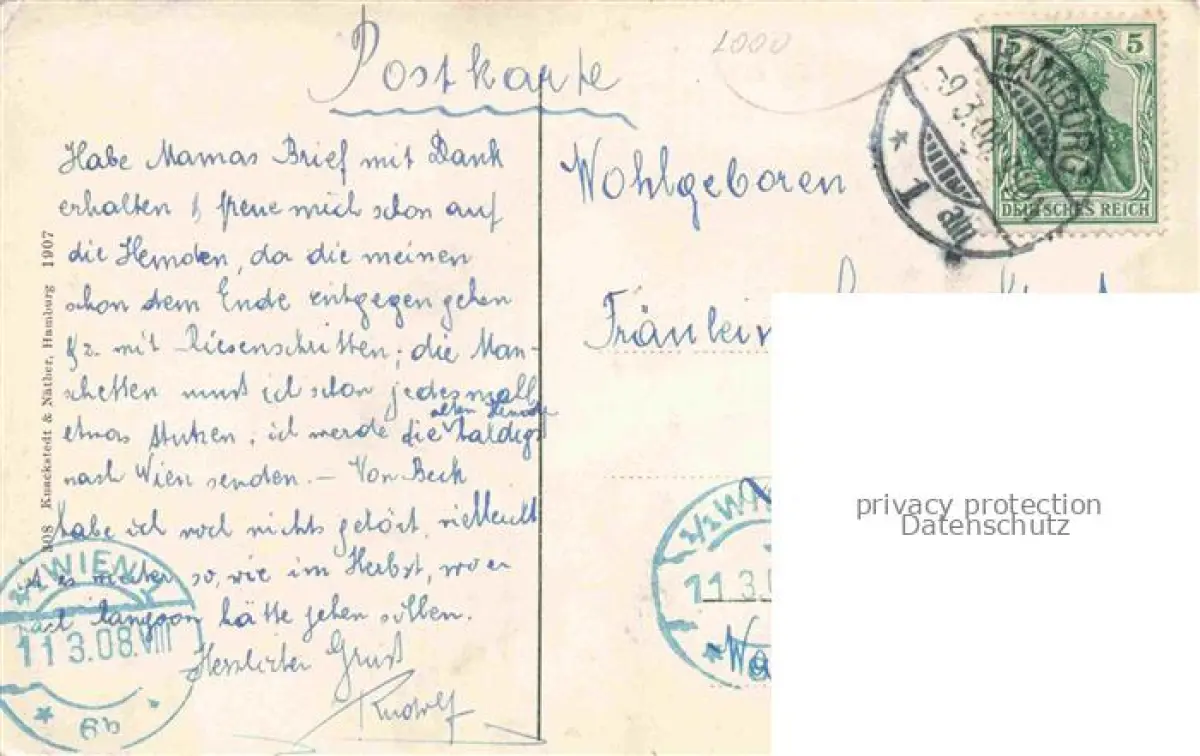 Postkarte
1000
Habe Mamas Brief mit Dank
erhalten & freue mich schon auf
die Hemden, da die meinen
schon dem Ende entgegen gehen
& z. mit Riesenschritten; die Man-
schetten muss ich schon jedesmall
etwas stutzen; ich werde die alten Hemden baldigst
nach Wien senden. – Von Beck
habe ich noch nichts gehört, vielleicht
ist es weiter so, wie im Herbst, wo er
nach hätte gehen sollen.
Herzlichen Gruß
Rudolf
308 Knackstedt & Näther, Hamburg 1907
WIEN
11 3.08.VIII
Wohlgeboren
Fräulein
HAMBURG
-9.3.08
* 1 am
5
DEUTSCHES REICH
11 3.0
privacy protection
Datenschutz